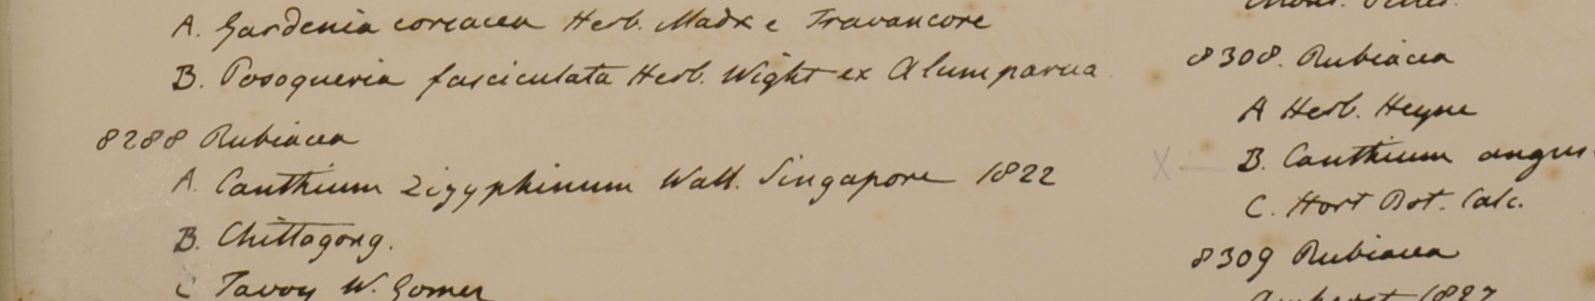 A. Gardenia coreacea Herb. Madx e Travancore
B. Posoqueria fasciculata Herb. Wight ex Alumparua
8288 Rubiacea
A. Canthium Zizyphinum Wall. Singapore 1822
B. Chittagong.
C Tavoy W. Gomez
8308. Rubiacea
A Herb. Heyne
X — B. Canthium angus
C. Hort Bot. Calc.
8309 Rubiacea
Amherst 1827